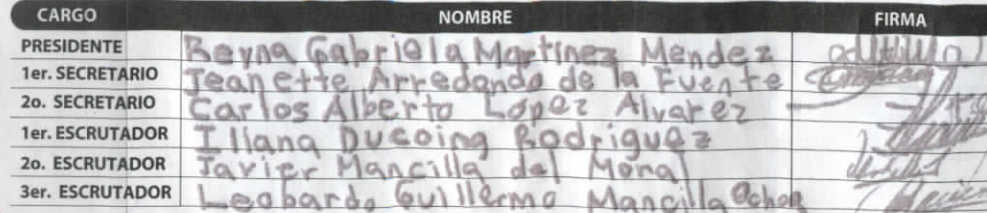 CARGO NOMBRE FIRMA
PRESIDENTE Reyna Gabriela Martínez Mendez
1er. SECRETARIO Jeanette Arredondo de la Fuente
2o. SECRETARIO Carlos Alberto López Alvarez
1er. ESCRUTADOR Iliana Ducoing Rodriguez
2o. ESCRUTADOR Javier Mancilla del Moral
3er. ESCRUTADOR Leobardo Guillermo Mancilla Ochoa